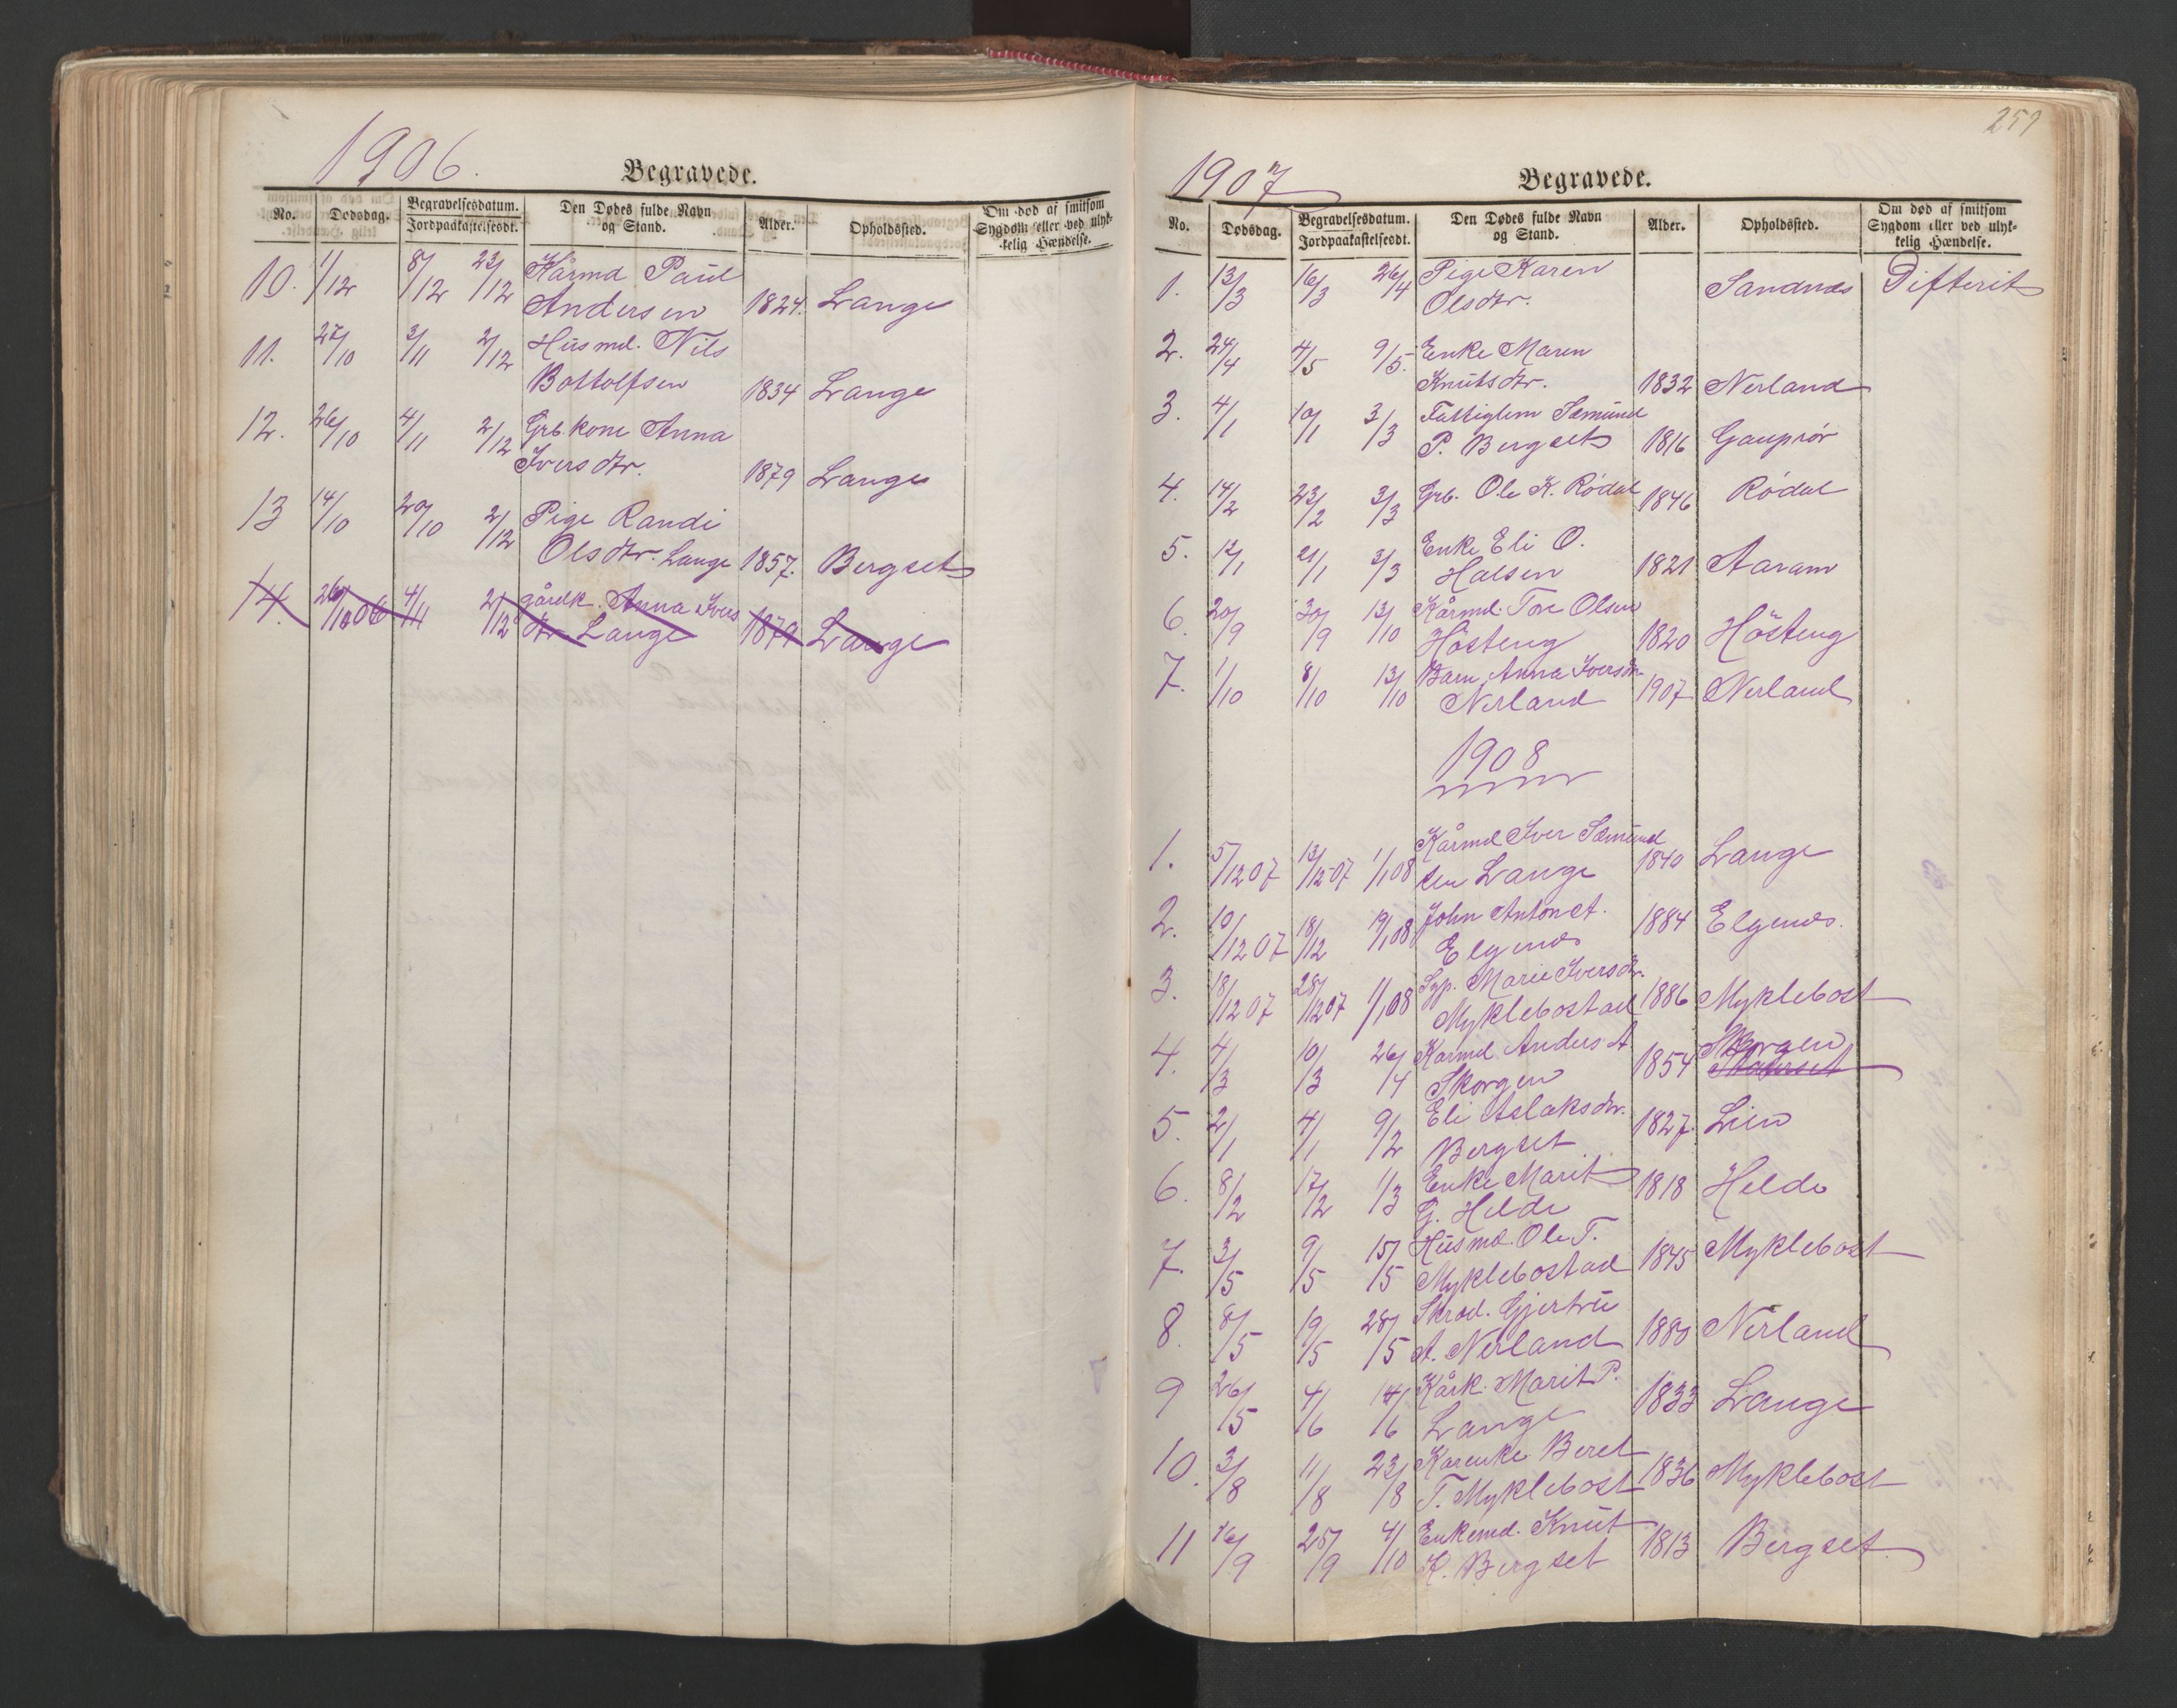 1906.
Begravede.
No. Dødsdag. Begravelsesdatum. Jordpaakastelsesdt. Den Dødes fulde Navn og Stand. Alder. Opholdssted. Om død af smitsom Sygdom eller ved ulykkelig Hændelse.
10. 1/12 8/12 23/12 Kårmd Paul
Andersen 1824. Lange
11. 27/10 3/11 2/12 Husmd. Nils
Bottolfsen 1834 Lange
12. 26/10 4/11 2/12 Grb.kone Anna
Iversdtr. 1879 Lange
13 14/10 20/10 2/12 Pige Randi
Olsdtr. Lange 1857. Bergset
14. 26/10 06 4/11 2/12 gårdk. Anna Ivers
dtr Lange 1879 Lange
259
1907
Begravede.
No. Dødsdag. Begravelsesdatum. Jordpaakastelsesdt. Den Dødes fulde Navn og Stand. Alder. Opholdssted. Om død af smitsom Sygdom eller ved ulykkelig Hændelse.
1. 13/3 16/3 26/4 Pige Karen
Olsdtr. Sandnes Difterit
2. 24/4 4/5 9/5. Enke Maren
Knutsdtr. 1832 Nerland
3. 4/1 10/1 3/3 Fattiglem Sæmund
P. Bergset 1816 Gauprør
4. 14/2 23/2 3/3 Grb. Ole K. Rødal 1846 Rødal
5. 12/1 21/1 3/3 Enke Eli O.
Halsen 1821 Aaram
6. 20/9 30/9 13/10 Kårmd. Tore Olsen
Hösteng 1820 Hösteng
7. 1/10 8/10 13/10 Barn Anna Iversdtr
Nerland 1907 Nerland
1908
1. 5/12 07 13/12 07 1/1 08 Kårmd Iver Sæmund
sen Lange 1840 Lange
2. 10/12 07 18/12 19/1 08 John Anton A.
Elgenæs 1884 Elgenæs.
3. 18/12 07 28/12 07 1/1 08 Syp. Marie Iversdtr.
Myklebostad 1886 Myklebost
4. 4/3 10/3 26/4 Karmd Anders A
Skorgen 1854 Skorgen
5. 2/1 4/1 9/2 Eli Aslaksdtr.
Bergset 1827 Lien
6. 8/2 17/2 1/3 Enke Marit
G. Helde 1818 Helde
7. 3/5 9/5 15/5 Husmd. Ole T.
Myklebostad 1845 Myklebost
8. 8/5 19/5 28/5 Skræd. Gjertru
A. Nerland 1880 Nerland
9 26/5 4/6 14/6 Kårk. Marit P.
Lange 1833 Lange
10. 3/8 11/8 23/8 Karenke Beret
T. Myklebost 1836 Myklebost
11 16/9 25/9 4/10 Enkemd. Knut
K. Bergset 1813 Bergset